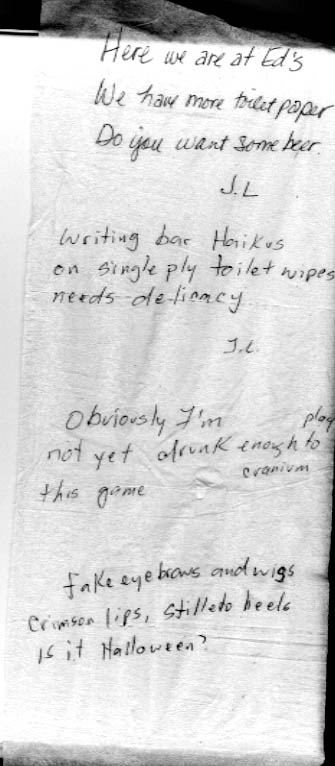 Here we are at Ed's
We have more toilet paper
Do you want some beer.
J.L
Writing bar Haikus
on single ply toilet wipes
needs delicacy
J.L.
Obviously I'm play
not yet drunk enough to
cranium
this game
Fake eyebrows and wigs
Crimson lips, stilleto heels
Is it Halloween?